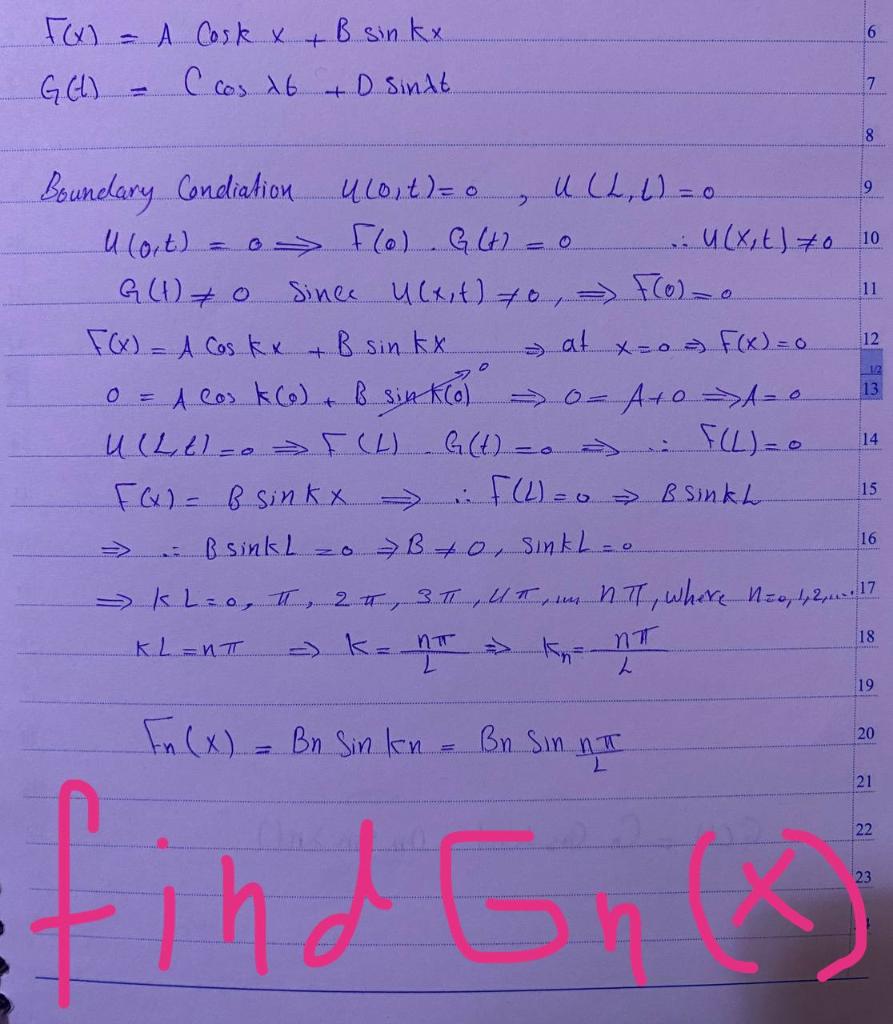 F(x) = A Cosk x + B sin kx
6
G(t) = C cos λt + D Sinλt
7
8
Boundary Condiation U(0,t)=0 , U(L,t)=0
9
U(0,t) = 0 ⇒ F(0) . G(t) = 0 ∴ U(x,t) ≠0
10
G(t) ≠ 0 Since U(x,t) ≠0, ⇒ F(0)=0
11
F(x) = A Cos kx + B sin kx ⇒ at x=0 ⇒ F(x)=0
12
0 = A cos k(0) + B sin k(0) 0 ⇒ 0= A+0 ⇒A=0
1/2
13
U(L,t)=0 ⇒ F(L) . G(t) =0 ⇒ ∴ F(L)=0
14
F(x) = B sin kx ⇒ ∴ F(L)=0 ⇒ B sinkL
15
⇒ ∴ B sinkL =0 ⇒B≠0, sinkL=0
16
⇒ kL=0, π, 2π, 3π, 4π, ... nπ, where n=0,1,2,....
17
KL=nπ ⇒ k= nπ/L ⇒ kn= nπ/L
18
19
Fn(x) = Bn Sin kn = Bn Sin nπ/L
20
21
22
23
find Gn(x)